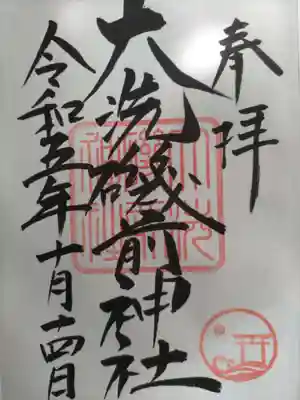 奉拝
大洗磯前神社
令和五年十月十四日